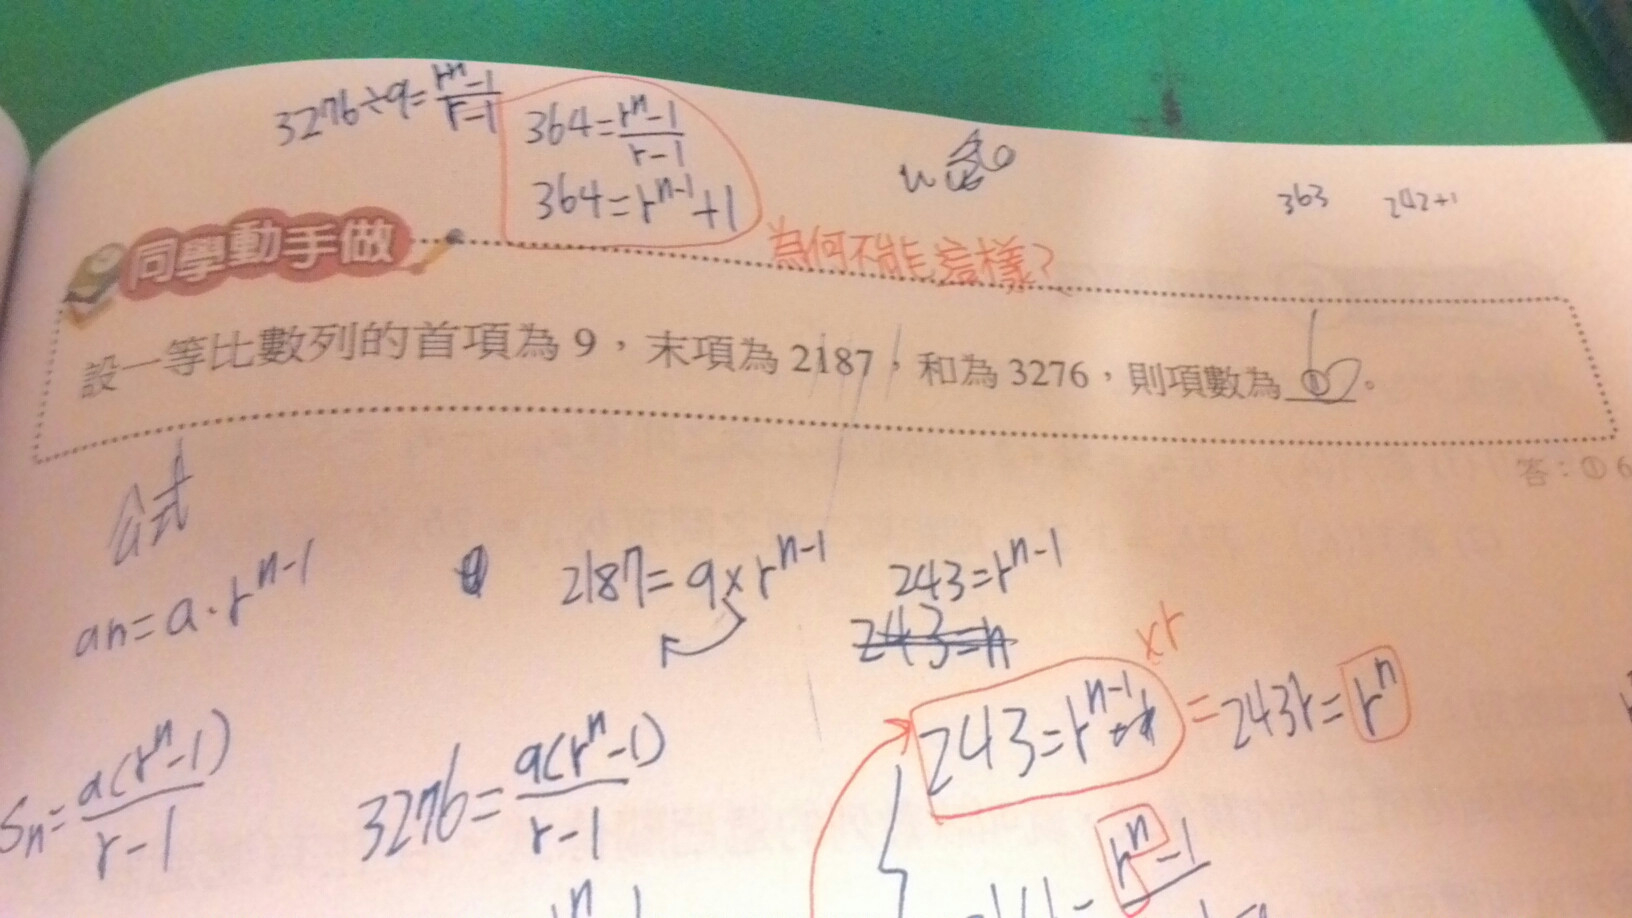 3276÷9=rⁿ-1/r-1
364=rⁿ-1/r-1
364=rⁿ⁻¹+1
為何不能這樣?
363 242+1
同學動手做
設一等比數列的首項為 9,末項為 2187,和為 3276,則項數為 ① 6 。
答:① 6
公式
an=a·rⁿ⁻¹
2187=9×rⁿ⁻¹
243=rⁿ⁻¹
243=n
×r
243=rⁿ⁻¹ = 243r=rⁿ
Sn=a(rⁿ-1)/r-1
3276=9(rⁿ-1)/r-1
rⁿ-1